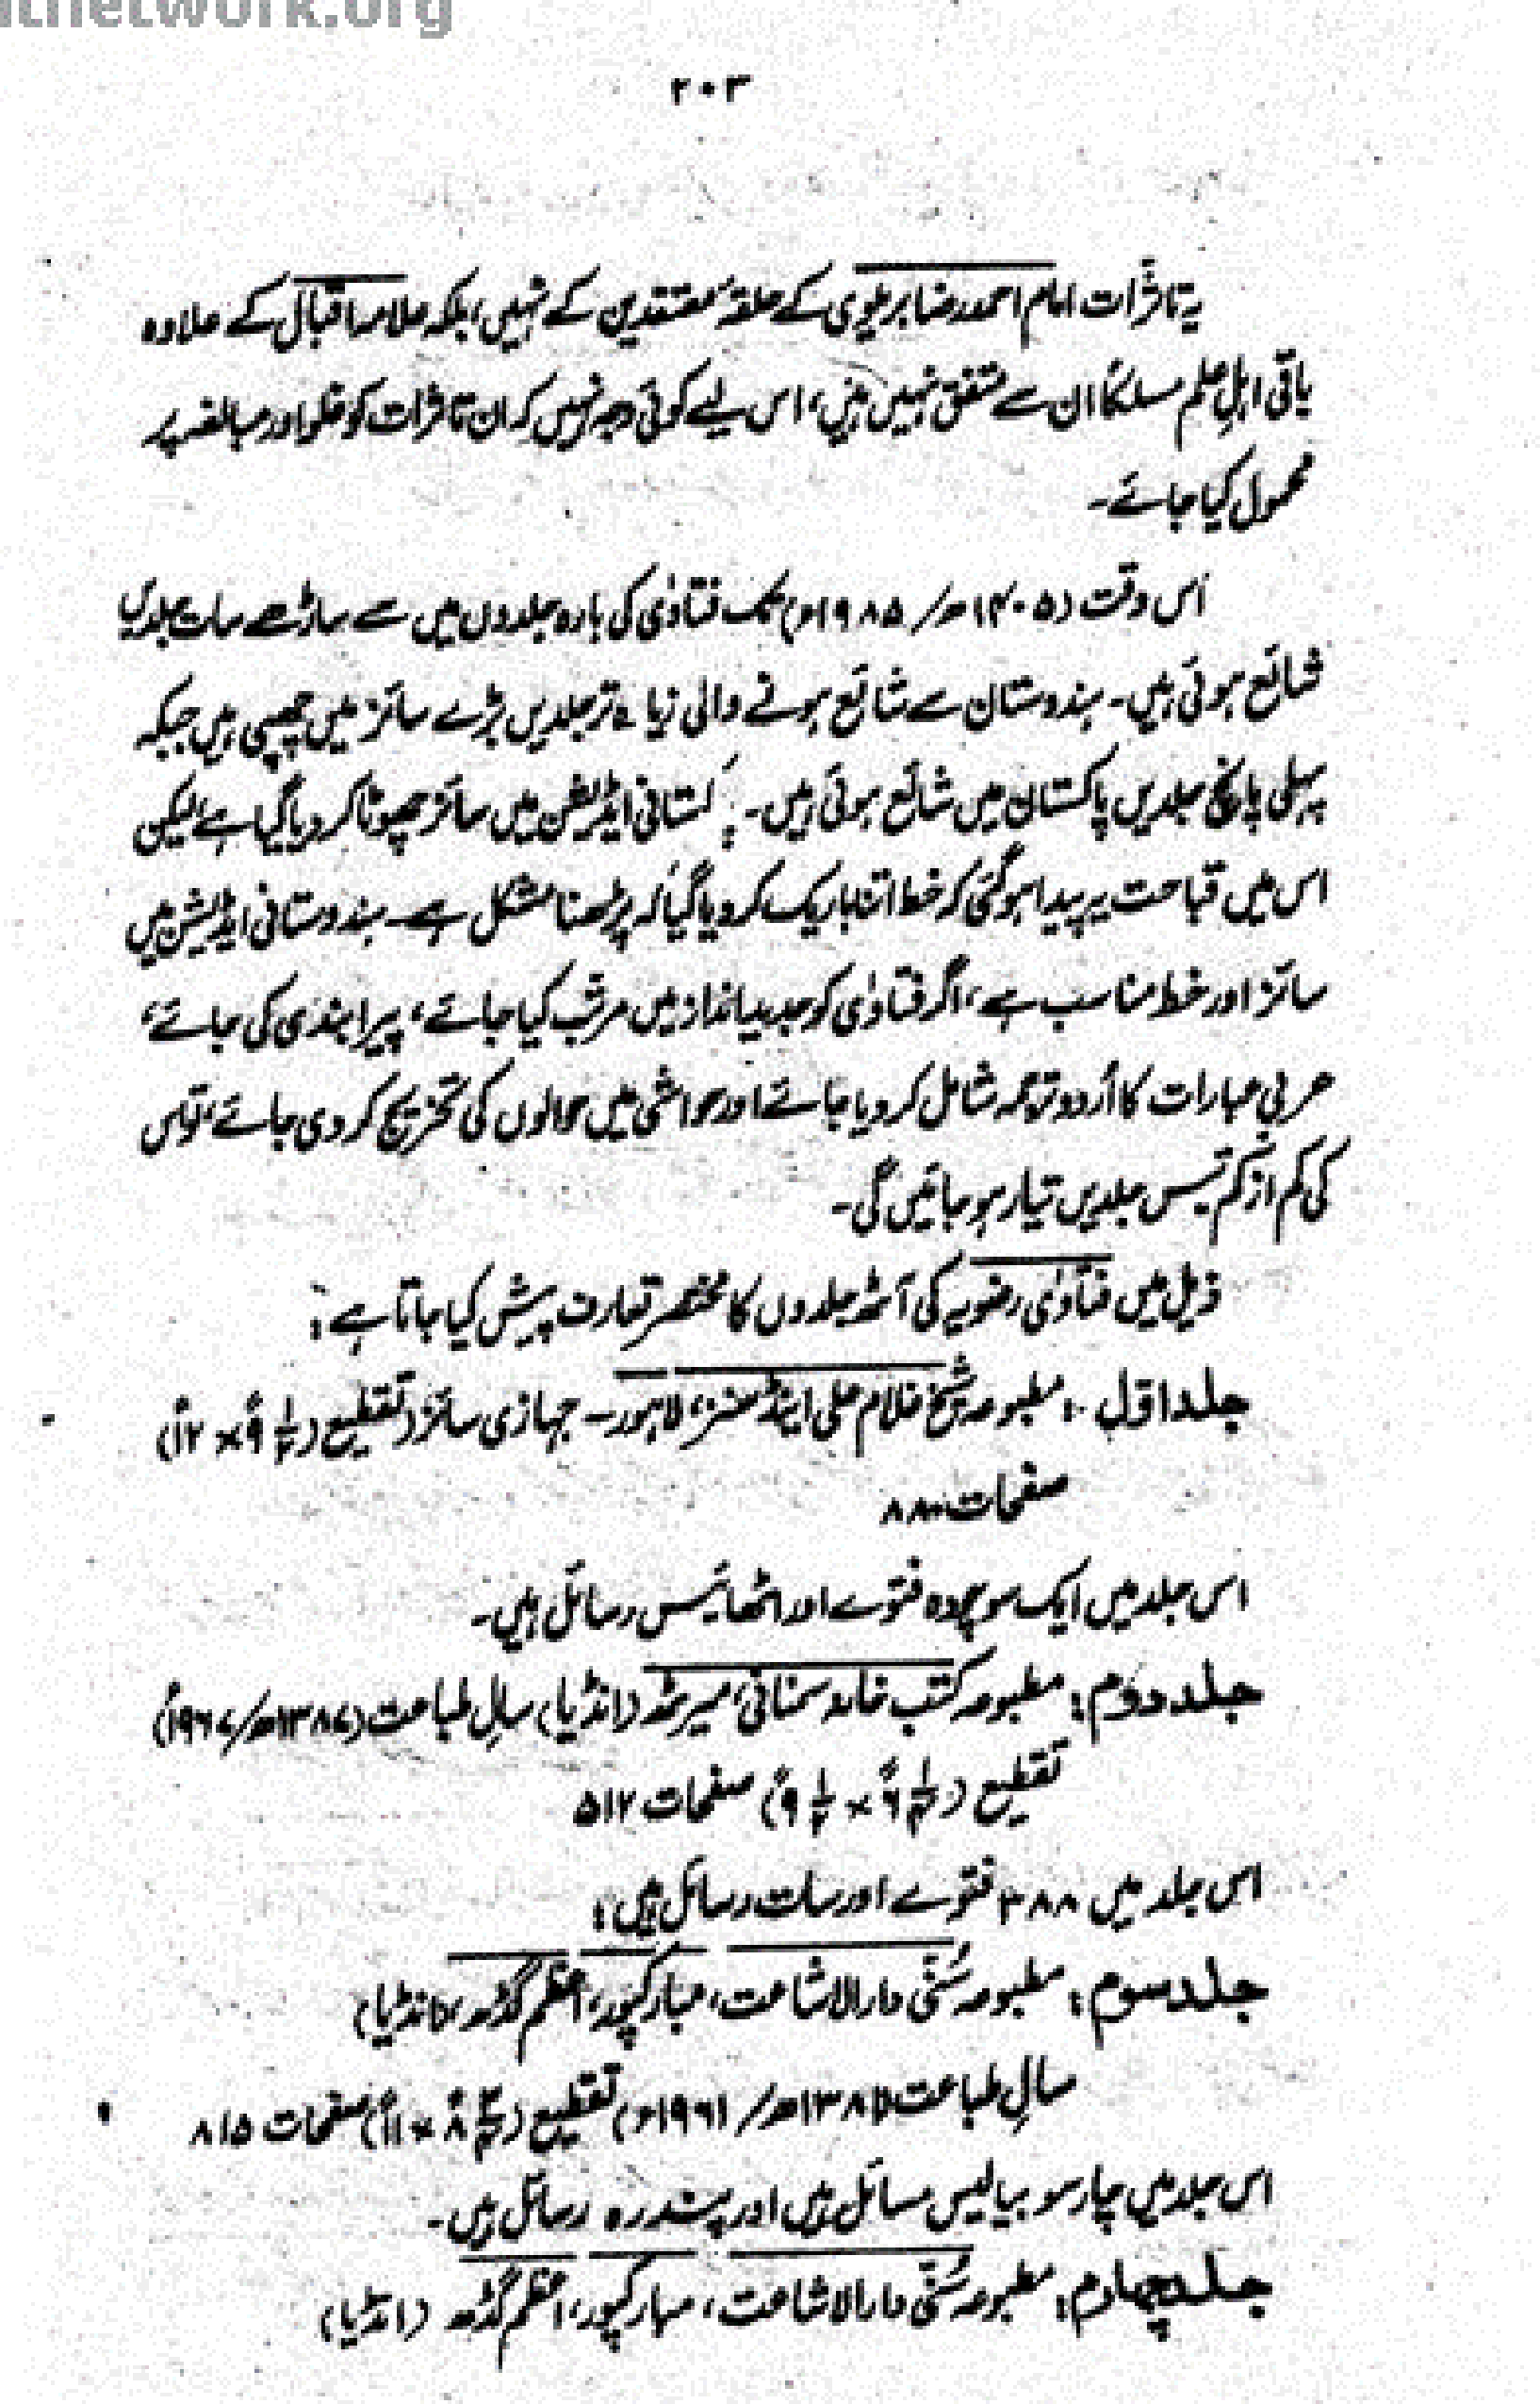 tnetwork.org
۲۰۳
یہ تاثرات امام احمد رضا بریلوی کے حلقۂ معتقدین کے نہیں، بلکہ علامہ اقبال کے علاوہ
باقی اہلِ علم مسلکاً ان سے متفق نہیں ہیں، اس لیے کوئی وجہ نہیں کہ ان تاثرات کو غلو اور مبالغہ پر
محمول کیا جائے۔
اس وقت (۱۴۰۵ھ/ ۱۹۸۵ء) تک فتاوٰی کی بارہ جلدوں میں سے ساڑھے سات جلدیں
شائع ہوئی ہیں۔ ہندوستان سے شائع ہونے والی زیادہ تر جلدیں بڑے سائز میں چھپی ہیں جبکہ
پہلی پانچ جلدیں پاکستان میں شائع ہوئی ہیں۔ پاکستانی ایڈیشن میں سائز چھوٹا کر دیا گیا ہے لیکن
اس میں قباحت یہ پیدا ہوگئی کہ خط اتنا باریک کر دیا گیا کہ پڑھنا مشکل ہے۔ ہندوستانی ایڈیشن میں
سائز اور خط مناسب ہے، اگر فتاوٰی کو جدید انداز میں مرتب کیا جائے، پیرا بندی کی جائے،
عربی عبارات کا اُردو ترجمہ شامل کر دیا جائے اور حواشی میں حوالوں کی تخریج کر دی جائے، تو اس
کی کم از کم تیس جلدیں تیار ہو جائیں گی۔
ذیل میں فتاوٰی رضویہ کی آٹھ جلدوں کا مختصر تعارف پیش کیا جاتا ہے:
جلد اوّل: مطبوعہ شیخ غلام علی اینڈ سنز، لاہور۔ جہازی سائز (تقطیع (۹ ۱/۲ × ۱۲)
صفحات ۸۸۰
اس جلد میں ایک سو چودہ فتوے اور اٹھائیس رسائل ہیں۔
جلد دوم: مطبوعہ کتب خانہ سمنانی، میرٹھ (انڈیا) سالِ طباعت (۱۳۸۷ھ/۱۹۶۷ء)
تقطیع (۶ ۱/۴ × ۹ ۱/۲) صفحات ۵۱۲
اس جلد میں ۳۸۸ فتوے اور سات رسائل ہیں:
جلد سوم: مطبوعہ سُنّی دارالاشاعت، مبارکپور، اعظم گڈھ، (انڈیا)
سالِ طباعت (۱۳۸۱ھ/ ۱۹۶۱ء) تقطیع (۸ ۳/۴ × ۱۱) صفحات ۸۱۵
اس جلد میں چار سو بیالیس مسائل ہیں اور پندرہ رسائل ہیں۔
جلد چہارم: مطبوعہ سُنّی دارالاشاعت، مبارکپور، اعظم گڈھ (انڈیا)